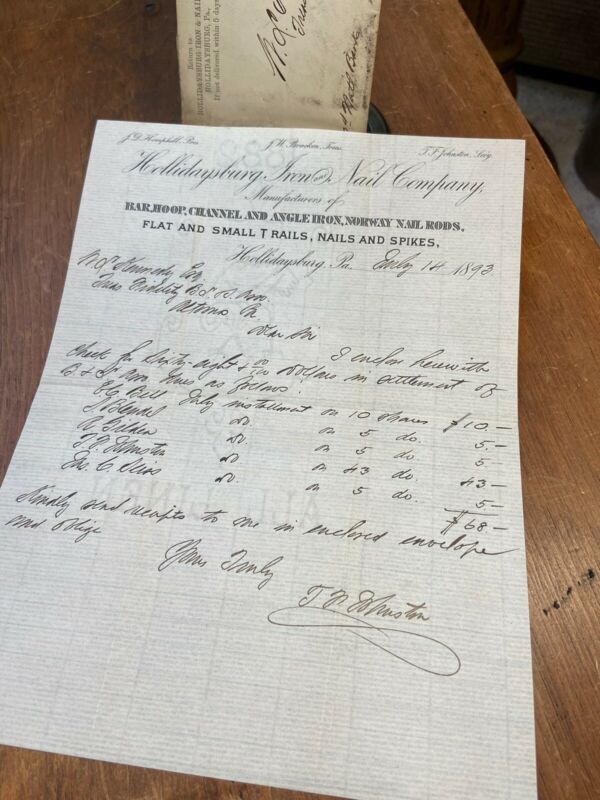 Return to
HOLLIDAYSBURG IRON & NAIL
HOLLIDAYSBURG, Pa.
If not delivered within 5 days
J. D. Hemphill, Pres.
J. W. Bracken, Treas.
T. F. Johnston, Secy.
Hollidaysburg Iron and Nail Company,
Manufacturers of
BAR, HOOP, CHANNEL AND ANGLE IRON, NORWAY NAIL RODS.
FLAT AND SMALL T RAILS, NAILS AND SPIKES,
Hollidaysburg, Pa. July 14 1893
Kennedy Esq
Treas Fidelity B. & L. Asso.
Altoona Pa.
Dear Sir
I enclose herewith
check for Sixty-eight & 00/100 Dollars in settlement of
B. & L. Asso. dues as follows:
Bell July installment on 10 shares $10.—
do on 5 do. 5.—
do on 5 do. 5—
T. F. Johnston do on 43 do. 43—
do on 5 do. 5—
$68—
Kindly send receipts to me in enclosed envelope
and oblige
Yours Truly
T. F. Johnston